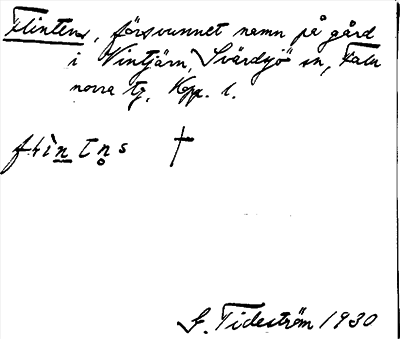 Flintens, försvunnet namn på gård
i Vintjärn, Svärdsjö sn, Falu
norra tg, Kopp. l.
flìntn̥s †
S. Tideström 1930